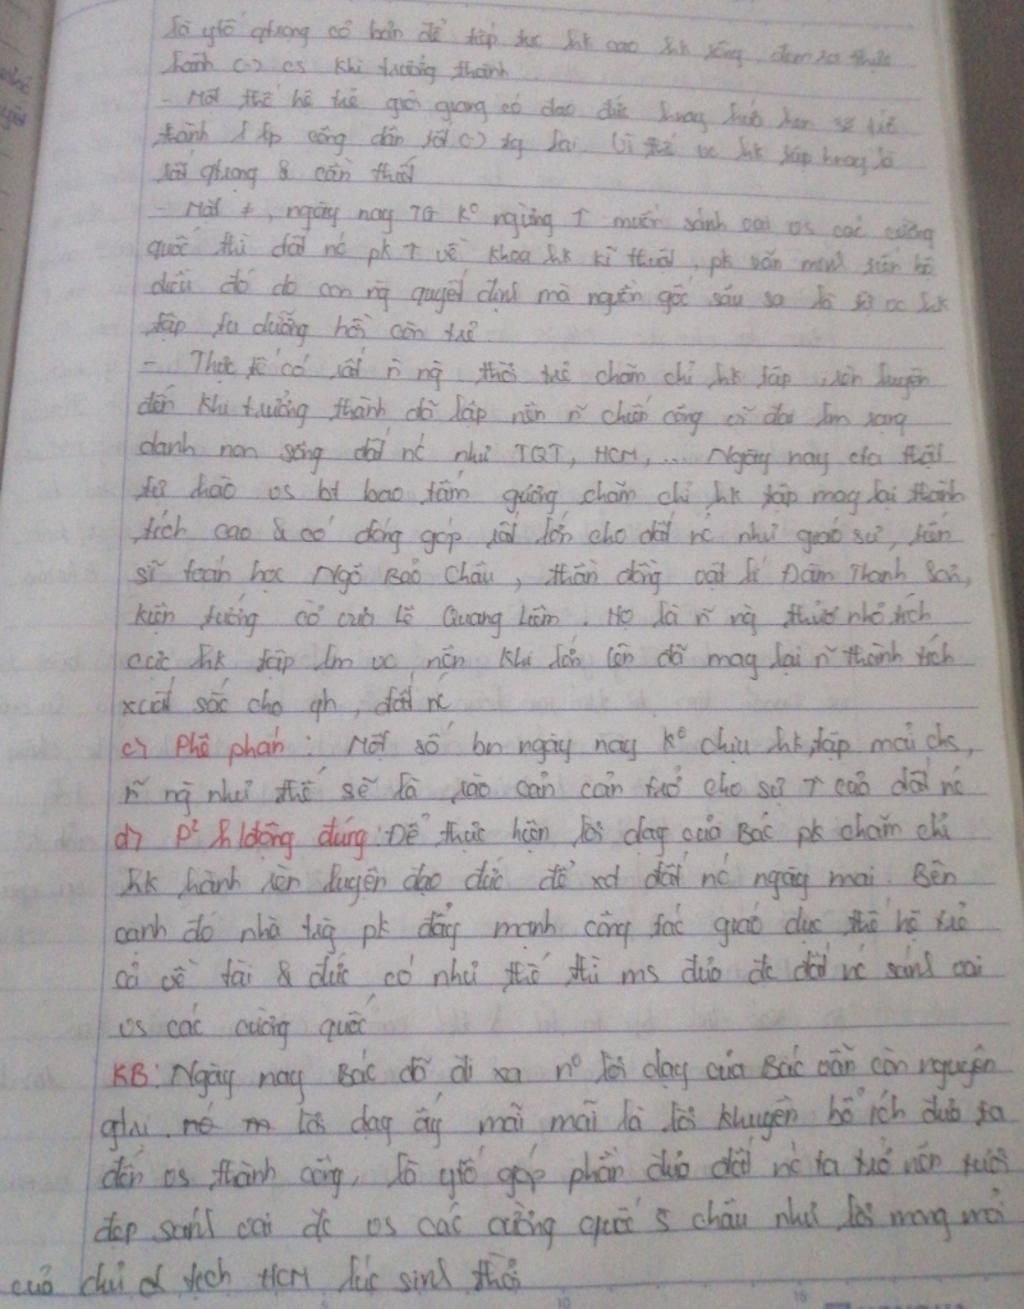 là ytố qtrọng cơ bản để tiếp tục hk cao hk rộng, đem ra thực
hành (-) cs khi trưởng thành
- Một thế hệ trẻ giỏi giang có đạo đức hnay hứa hẹn sẽ trở
thành 1 lớp công dân tốt (-) tg lai. Vì thế vc hk tập hnay là
rất qtrọng & cần thiết
- Mặt ≠, ngày nay TG k° ngừng ↑ muốn sánh vai vs các cường
quốc thì đất nc pk ↑ về khoa hk kĩ thuật, pk văn minh tiến bộ
điều đó do con ng quyết định mà nguồn gốc sâu xa là từ vc hk
tập tu dưỡng hồi còn trẻ
- Thực tế có rất n ng thời trẻ chăm chỉ hk tập, rèn luyện
đến khi trưởng thành đã lập nên n~ chiến công vĩ đại lm rạng
danh non sông đất nc như TQT, HCM, ... Ngày nay cta thật
tự hào vs bt bao tấm gương chăm chỉ hk tập mag lại thành
tích cao & có đóng góp rất lớn cho đất nc như giáo sư, tiến
sĩ toán học Ngô Bảo Châu, thần đồng vật lí Đàm Thanh Sơn,
kiện tướng cờ vua Lê Quang Liêm. Họ là n~ ng thuở nhỏ tích
cực hk tập lm vc nên khi lớn lên đã mag lại n~ thành tích
xuất sắc cho qh, đất nc
c) Phê phán: Một số bn ngày nay k° chịu hk tập mải chs,
n~ ng như thế sẽ là rào cản cản trở cho sự ↑ của đất nc
d) P² h'động đúng: Để thực hiện lời dạy của Bác pk chăm chỉ
hk hành rèn luyện đạo đức để xd đất nc ngày mai. Bên
cạnh đó nhà trg pk đẩy mạnh công tác giáo dục thế hệ trẻ
cả về tài & đức có như thế thì ms đưa đc đất nc sánh vai
vs các cường quốc
KB: Ngày nay Bác đã đi xa n° lời dạy của Bác vẫn còn nguyên
gtrị. lời dạy ấy mãi mãi là lời khuyên bổ ích đưa ta
đến vs thành công, là ytố góp phần đưa đất nc ta trở nên tươi
đẹp sánh vai đc vs các cường quốc 5 châu như lời mong mỏi
của chủ tịch HCM lúc sinh thời